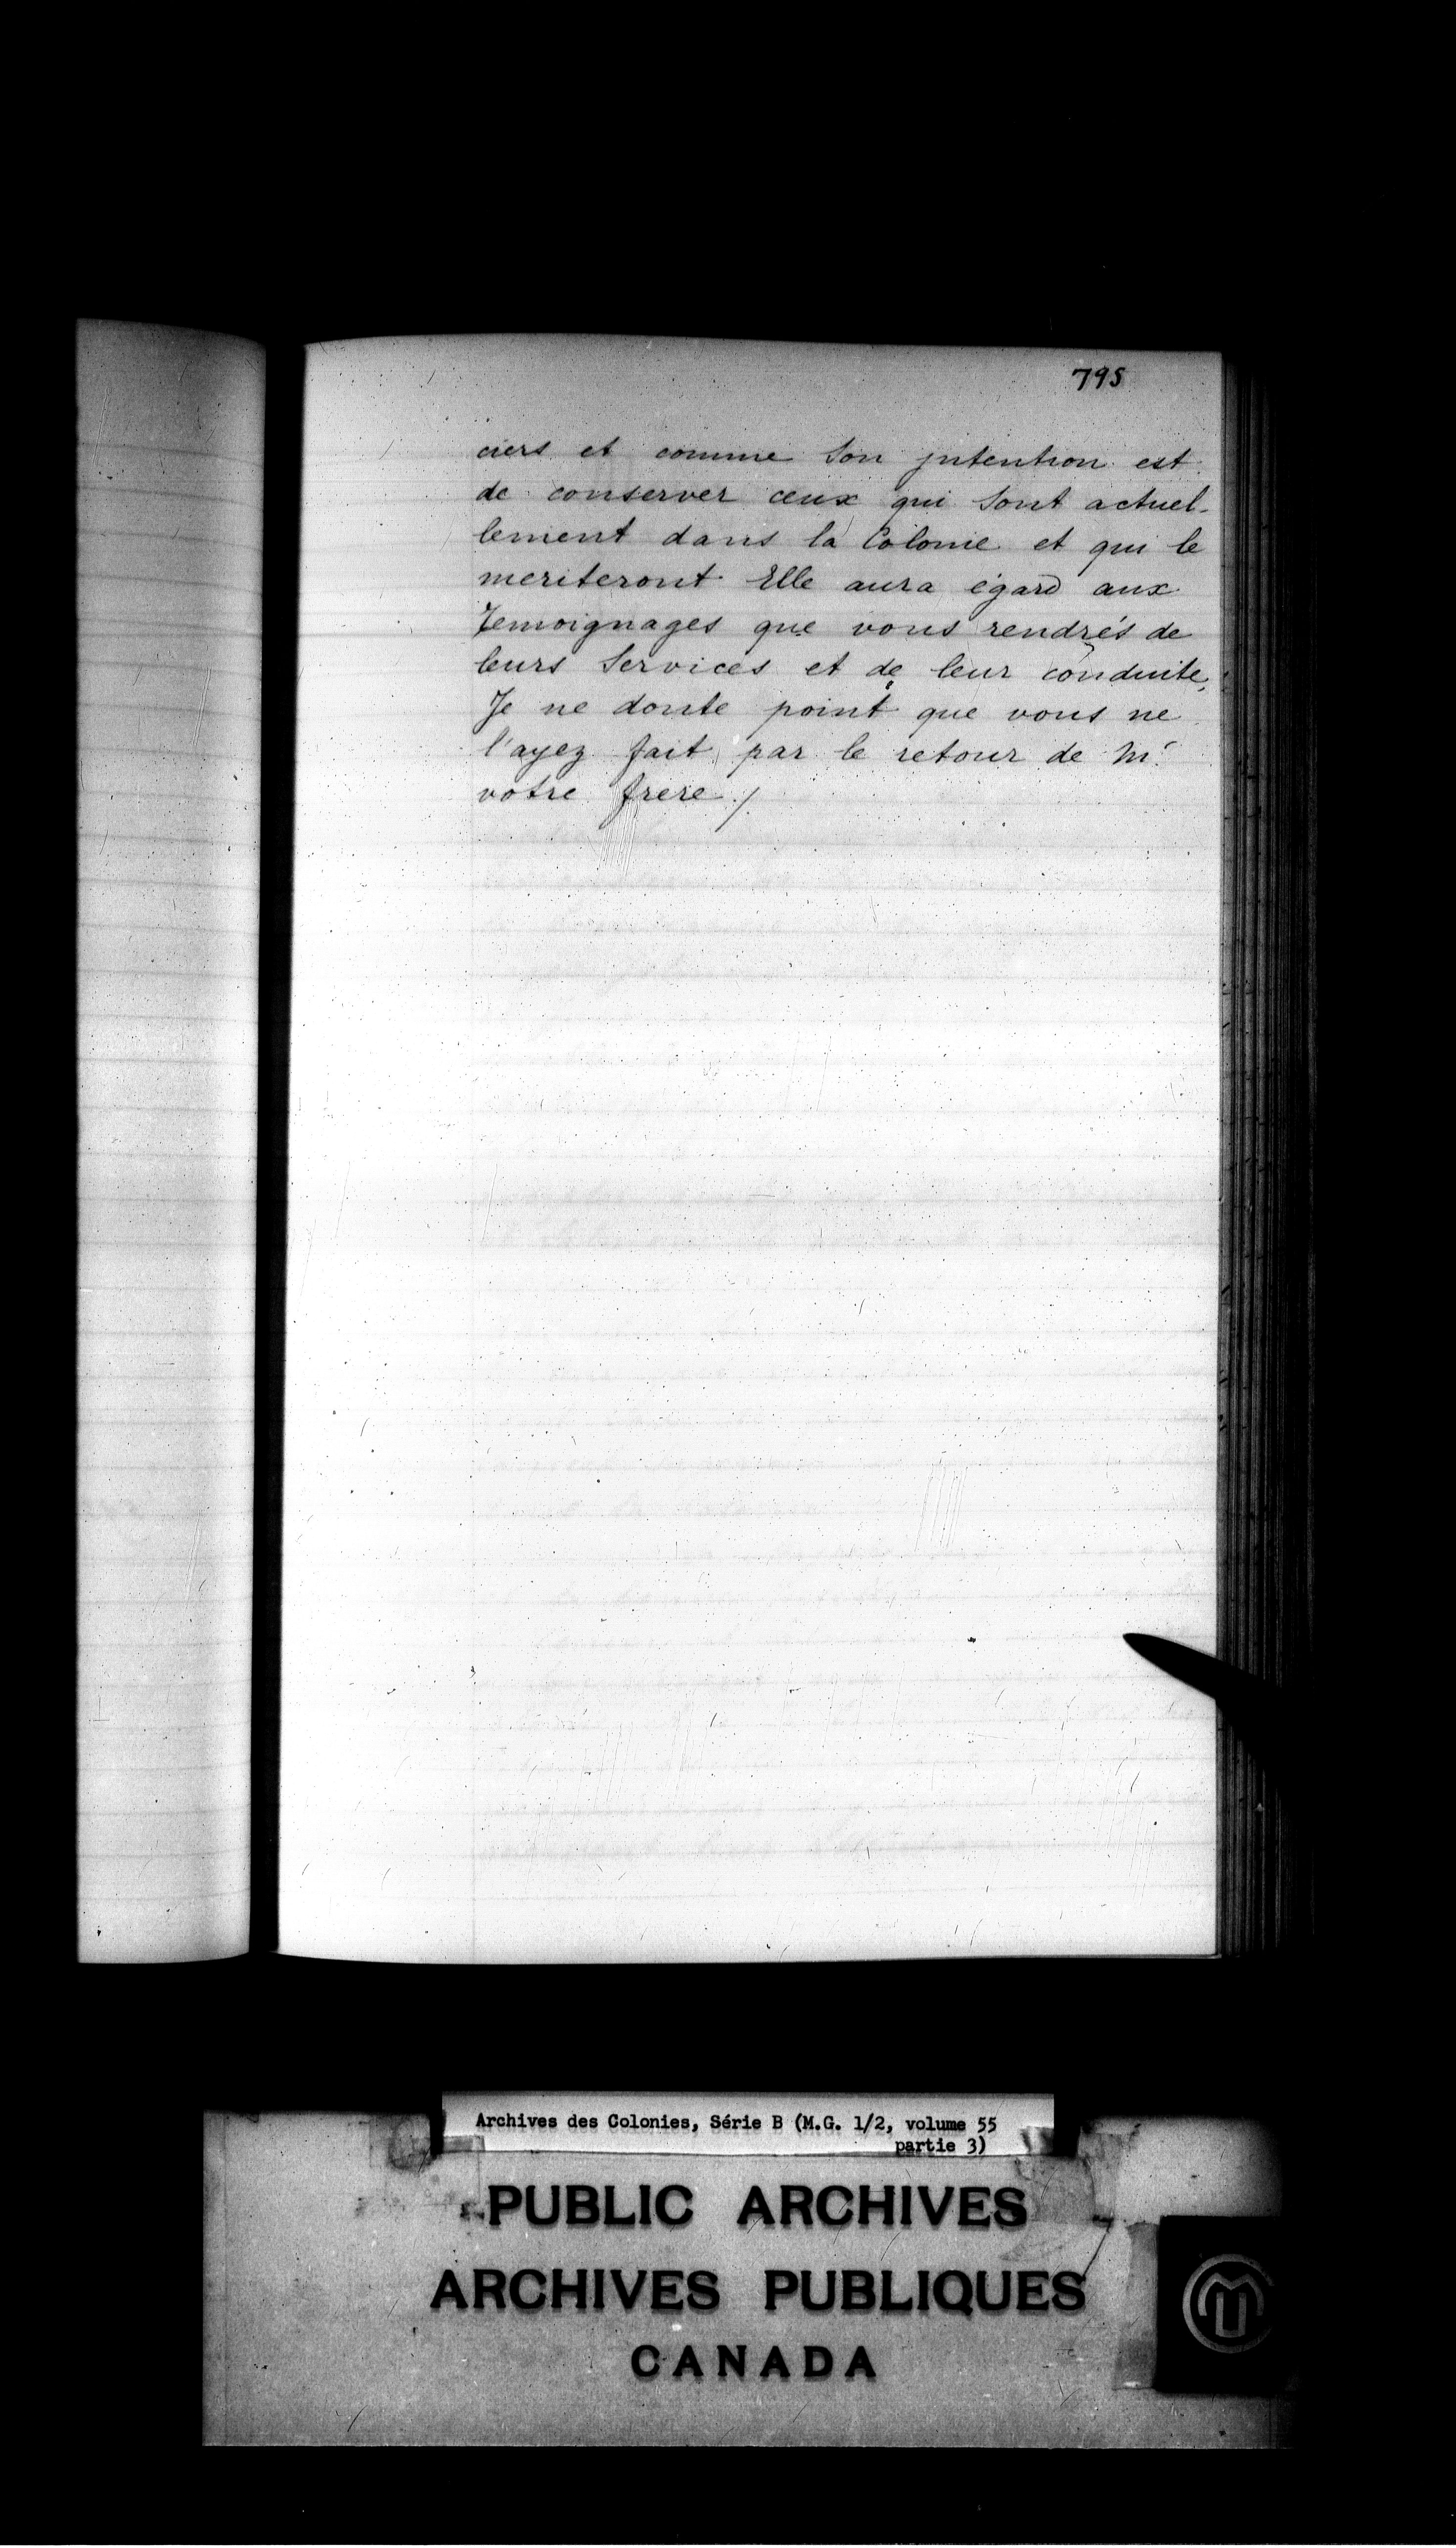 795
ciers et comme Son jntention est
de conserver ceux qui Sont actuel-
lement dans la Colonie et qui le
meriteront Elle aura égard aux
Temoignages que vous rendrés de
leurs Services et de leur conduite,
Je ne doute point que vous ne
l'ayez fait par le retour de Mr.
votre frere ./.
Archives des Colonies, Série B (M.G. 1/2, volume 55
partie 3)
PUBLIC ARCHIVES
ARCHIVES PUBLIQUES
CANADA